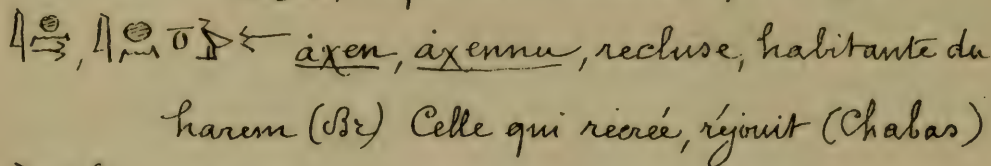 áχen, áχennu, recluse, habitante du
harem (Br) Celle qui récrée, réjouit (Chabas)